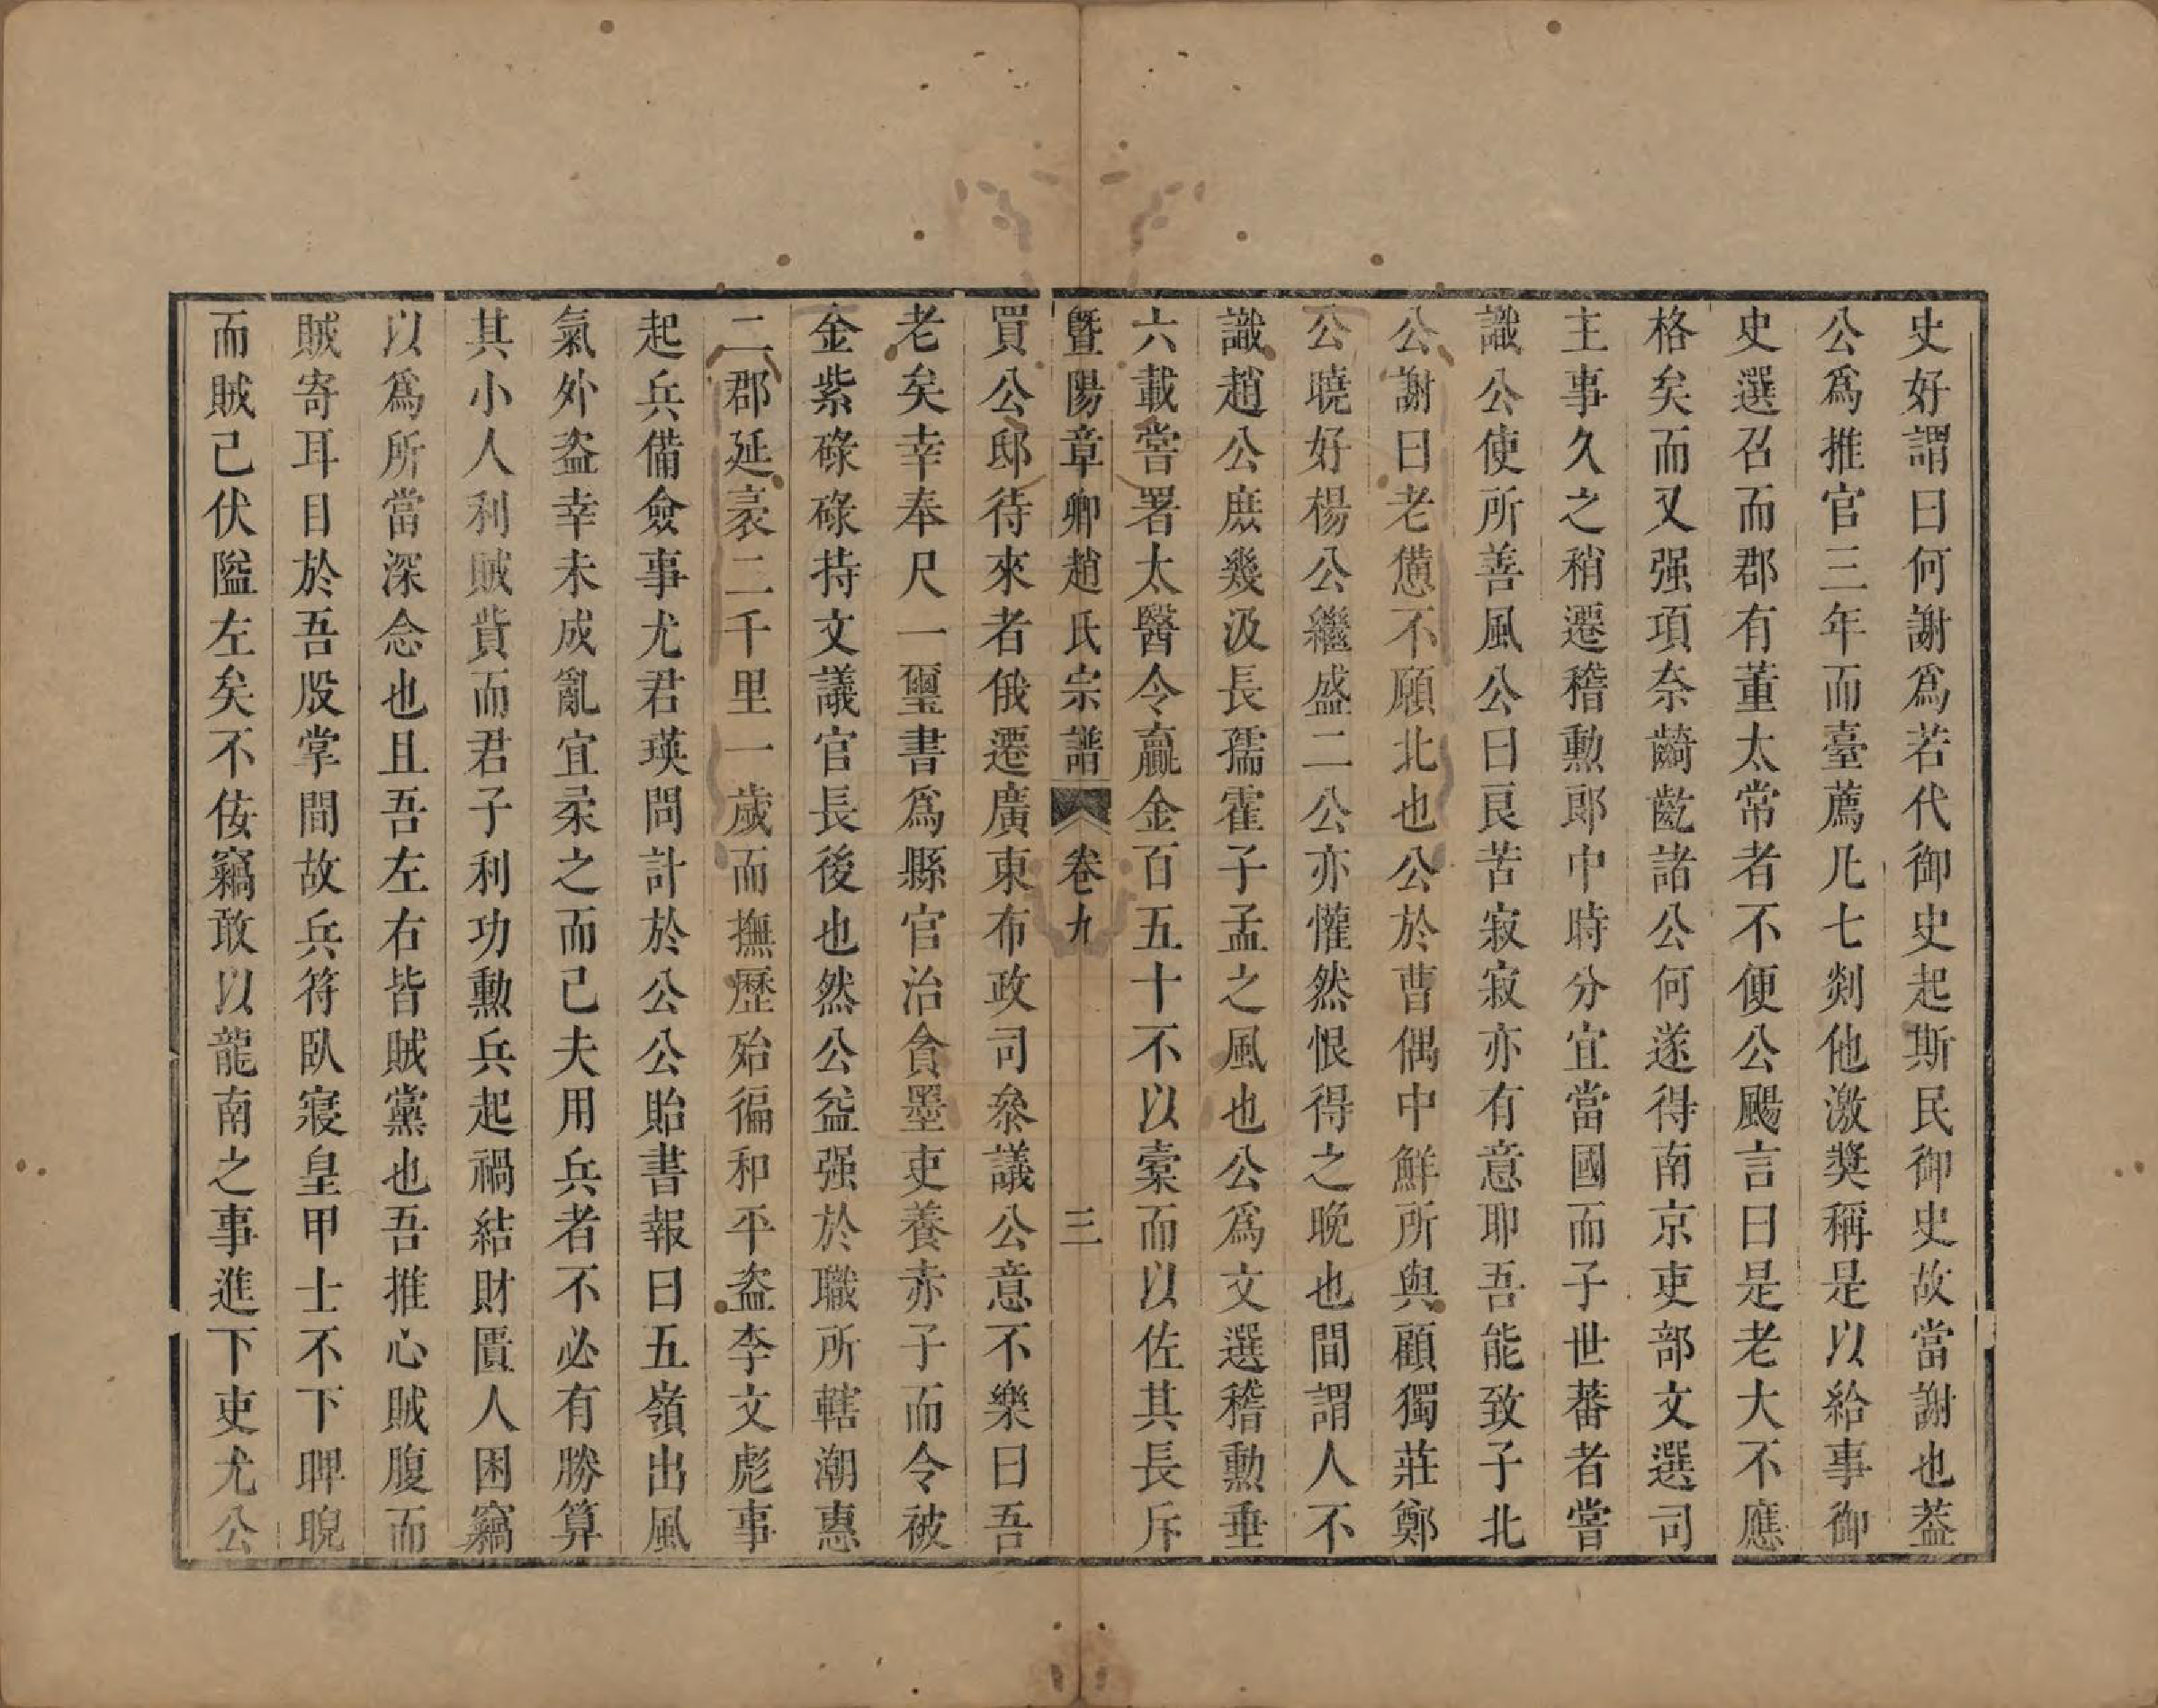 史好謂曰何謝爲若代御史起斯民御史故當謝也葢
公爲推官三年而臺薦凡七剡他激奬稱是以給事御
史選召而郡有董太常者不便公颺言曰是老大不應
格矣而又强項奈齮齕諸公何遂得南京吏部文選司
主事久之稍遷稽勲郎中時分宜當國而子世蕃者嘗
識公使所善風公曰良苦寂寂亦有意耶吾能致子北
公謝曰老憊不願北也公於曹偶中鮮所與顧獨莊鄭
公曉好楊公繼盛二公亦懽然恨得之晚也間謂人不
識趙公庶幾汲長孺霍子孟之風也公爲文選稽勲垂
六載嘗署太醫令贏金百五十不以橐而以佐其長斥
暨陽章卿趙氏宗譜 卷九 三
買公邸待來者俄遷廣東布政司叅議公意不樂曰吾
老矣幸奉尺一璽書爲縣官治貪墨吏養赤子而令被
金紫碌碌持文議官長後也然公益强於職所轄潮惠
二郡延袤二千里一歲而撫歷殆徧和平盗李文彪事
起兵備僉事尤君瑛問計於公公貽書報曰五嶺出風
氣外盗幸未成亂宜柔之而已夫用兵者不必有勝算
其小人利賊貲而君子利功勲兵起禍結財匱人困竊
以爲所當深念也且吾左右皆賊黨也吾推心賊腹而
賊寄耳目於吾股掌間故兵符臥寢皇甲士不下睥睨
而賊已伏隘左矣不佞竊敢以龍南之事進下吏尤公